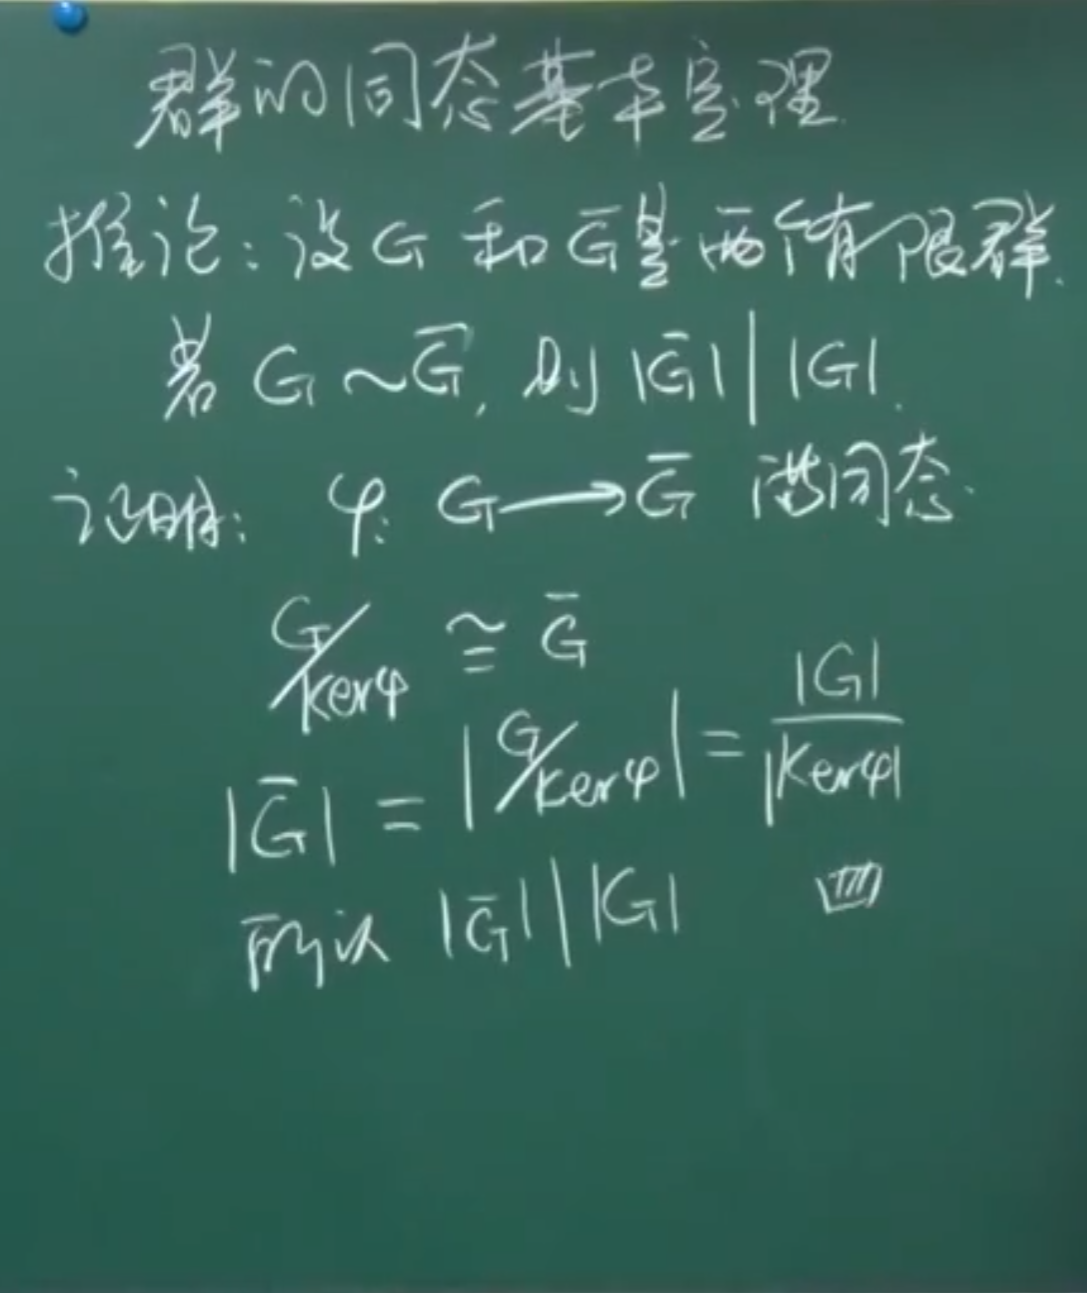 群的同态基本定理
推论: 设 G 和 G̅ 是两个有限群.
若 G ~ G̅, 则 |G̅| | |G|.
证明: φ: G ⟶ G̅ 满同态.
G/kerφ ≅ G̅
|G̅| = |G/kerφ| = |G|/|Kerφ|
所以 |G̅| | |G|